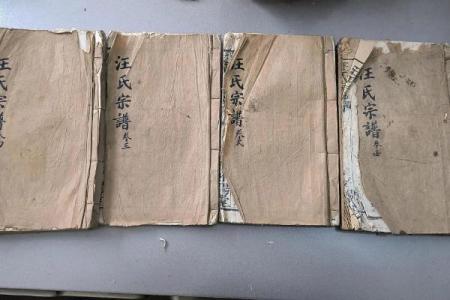 汪氏宗譜
汪氏宗譜 卷三
汪氏宗譜
汪氏宗譜